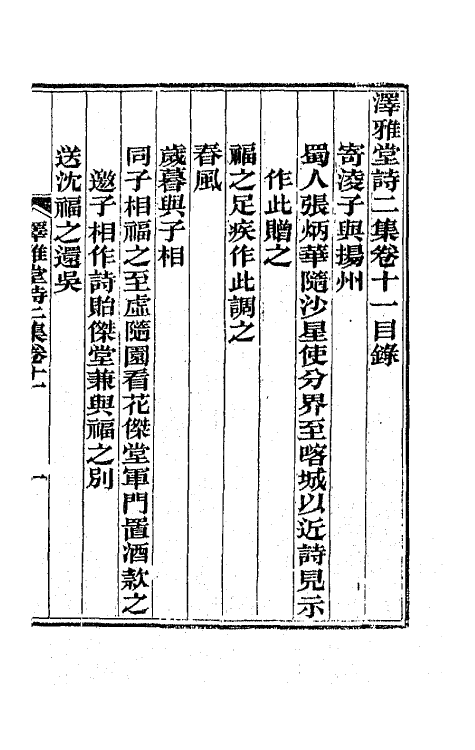 澤雅堂詩二集卷十一目錄
寄淩子與揚州
蜀人張炳華隨沙星使分界至喀城以近詩見示
作此贈之
福之足疾作此調之
春風
歲暮與子相
同子相福之至虛隨園看花傑堂軍門置酒款之
邀子相作詩貽傑堂兼與福之別
送沈福之還吳
澤雅堂詩二集卷十一
一